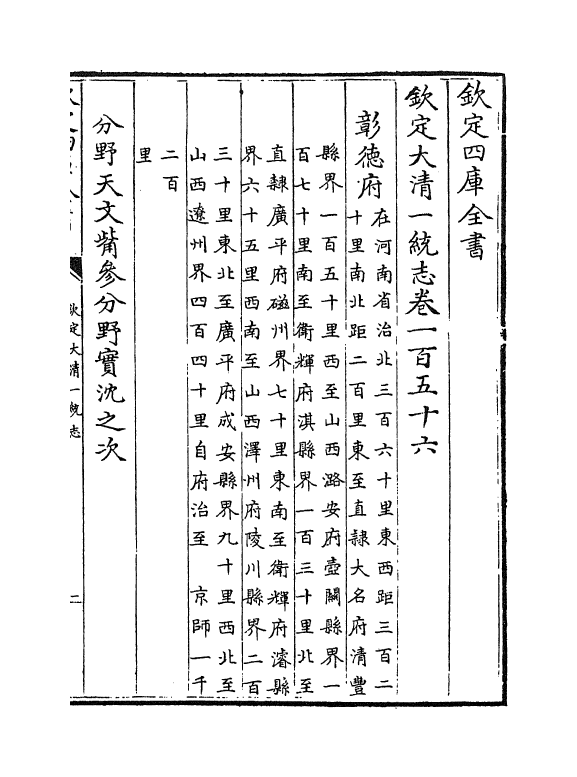 欽定四庫全書
欽定大清一統志卷一百五十六
彰徳府
在河南省治北三百六十里東西距三百二
十里南北距二百里東至直隸大名府清豐
縣界一百五十里西至山西潞安府壺關縣界一
百七十里南至衛輝府淇縣界一百三十里北至
直隸廣平府磁州界七十里東南至衛輝府濬縣
界六十五里西南至山西澤州府陵川縣界二百
三十里東北至廣平府成安縣界九十里西北至
山西遼州界四百四十里自府治至 京師一千
二百
里
分野天文觜參分野實沈之次
欽定大清一統志
二